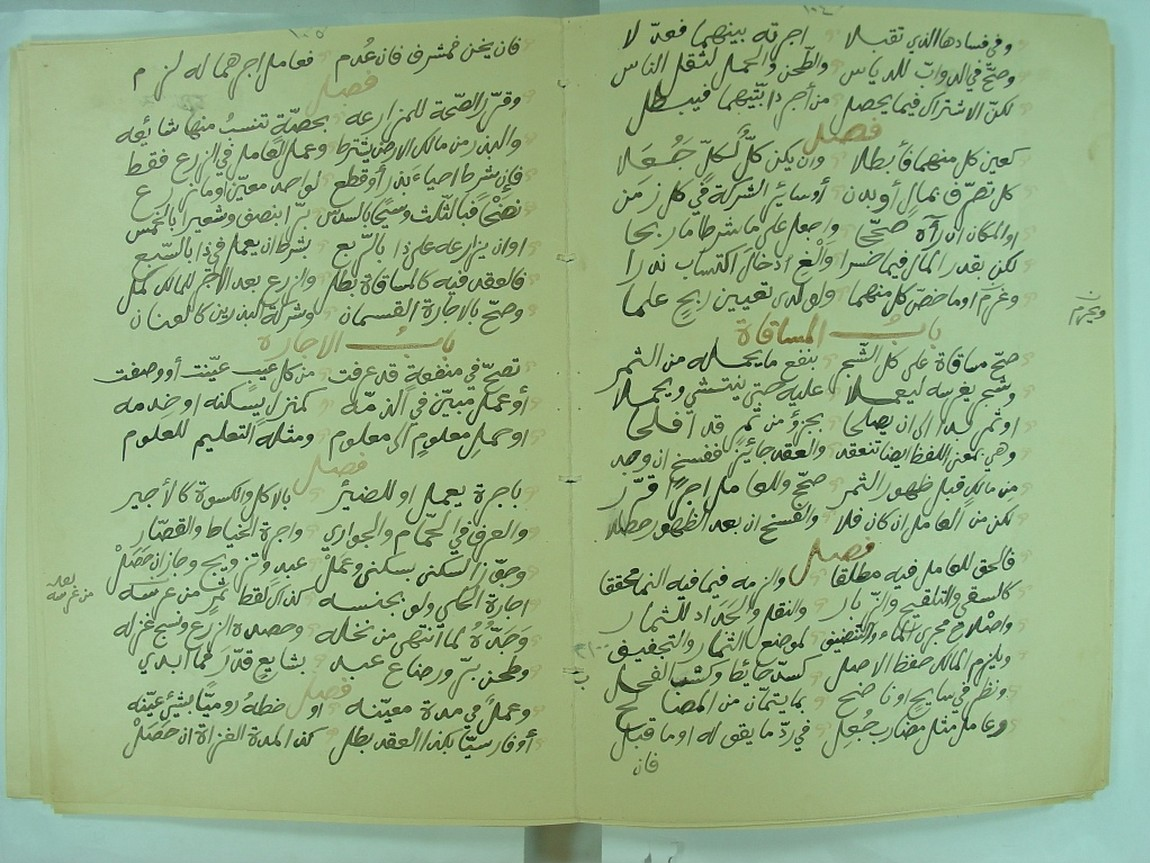 وفي فسادها الذي تقبلا اجرته بينهما فعدّ لا
وصحّ في الدوابّ للدياس والطحن والحمل لثقل الناس
لكنّ الاشتراك فيما يحصل من أجر دابّتيهما فيبطل
فصل
كعين كل منهما فأبطلا وان يكن كلّ لكلّ جُعَلا
كل تصرّف بمال أو بدن أو سائر الشركة في كل زمن
او المكان ان رآه صحّا واجعل على ما شرطا ما ربحا
لكن بقدر المال فيما خسرا والغ ادخال اكتساب ندرا
وغرم او ما خصّ كل منهما ولو لدى تعيين ربح علما
باب المساقاة
صحّ مساقاة على كل الشجر بنفع ما يحمله من الثمر
وشجر يغرسه ليعملا عليه حتى ينتشي ويحملا
او ثمر بدا الى ان يصلحا بجزؤ من ثمر قد افلحا
وهي بمعنى اللفظ ايضا تنعقد والعقد جائز ففسخ ان وجد
من مالك قبل ظهور الثمر صحّ وللعامل اجرا قرّر
لكن من العامل ان كان فلا والفسخ ان بعد الظهور حصلا
فصل
فالحق للعامل فيه مطلقا والزمه فيما فيه النما محققا
كالسقي والتلقيح والزبار والنقل والحداد للثمار
واصلاح مجرى الماء والتضنيق لموضع الثمار والتجفيف
ويلزم المالك حفظ الاصل كسدّ حائط وكشب الفحل
ونظر في سايح او ناضح بما يتمّان من المصالح
وعامل مثل مضارب جُعِل في ردّ ما يقوله او ما قبل
فان
ويغرم
فان يخن فمشرف فان عُدم فعامل اجرهما له لزم
فصل
وقرّر الصّحة للمزارعه بحصّة تنسبُ منها شائعه
والبذر من مالك الارض شرط وعمل العامل في الزرع فقط
فان شرط احياء بذر أو قطع لواحد معيّن او ما زرع
نضحًا فبالثلث وسيحًا بالسدس برّا بنصف وشعيرا بالخمس
او ان يزارعه على ذا بالرّبع بشرط ان يعمل في ذا بالسّبع
فالعقد فيه كالمساقاة بطل والزرع بعد الاجر للمالك كمل
وصحّ بالاجارة القسمان وشركة البذرين كالعنان
باب الاجارة
تصحّ في منفعة قد عرفت من كل عيب عيّنت أو وصفت
أو عمل مبيّن في الذمّه كمنزل يسكنه او خدمه
او حمل معلوم الى معلوم ومثله التعليم للعلوم
فصل
باجرة يعمل او للضئر بالاكل والكسوة كالأجير
والعرف في الحمّام والجواري واجرة الخياط والقصّار
وحقّ ز السكنى بسكنى وعمل عبد وتزويج وجاز ان حصل
اجارة الحلي ولو بجنسه كذاك لقط ثمر من غرسه
وجدّه لما انتهى من نخله وحصده الزرع ونسج غزله
وطحن برّ ورضاع عبد بشايع قدّر مما ابدي
فصل
وعمل في مدة معيّنه او خطه روميّا بشيء عيّنه
أو فارسيّا بكذا العقد بطل كذا المدة الغزاة ان حصل
بعد
من غرسه